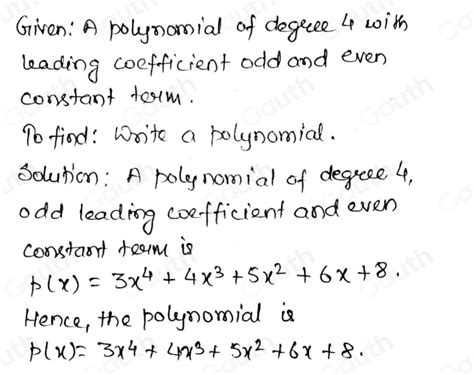 Given: A polynomial of degree 4 with
leading coefficient odd and even
constant term.
To find: Write a polynomial.
Solution: A polynomial of degree 4,
odd leading coefficient and even
constant term is
p(x) = 3x⁴ + 4x³ + 5x² + 6x + 8.
Hence, the polynomial is
p(x) = 3x⁴ + 4x³ + 5x² + 6x + 8.